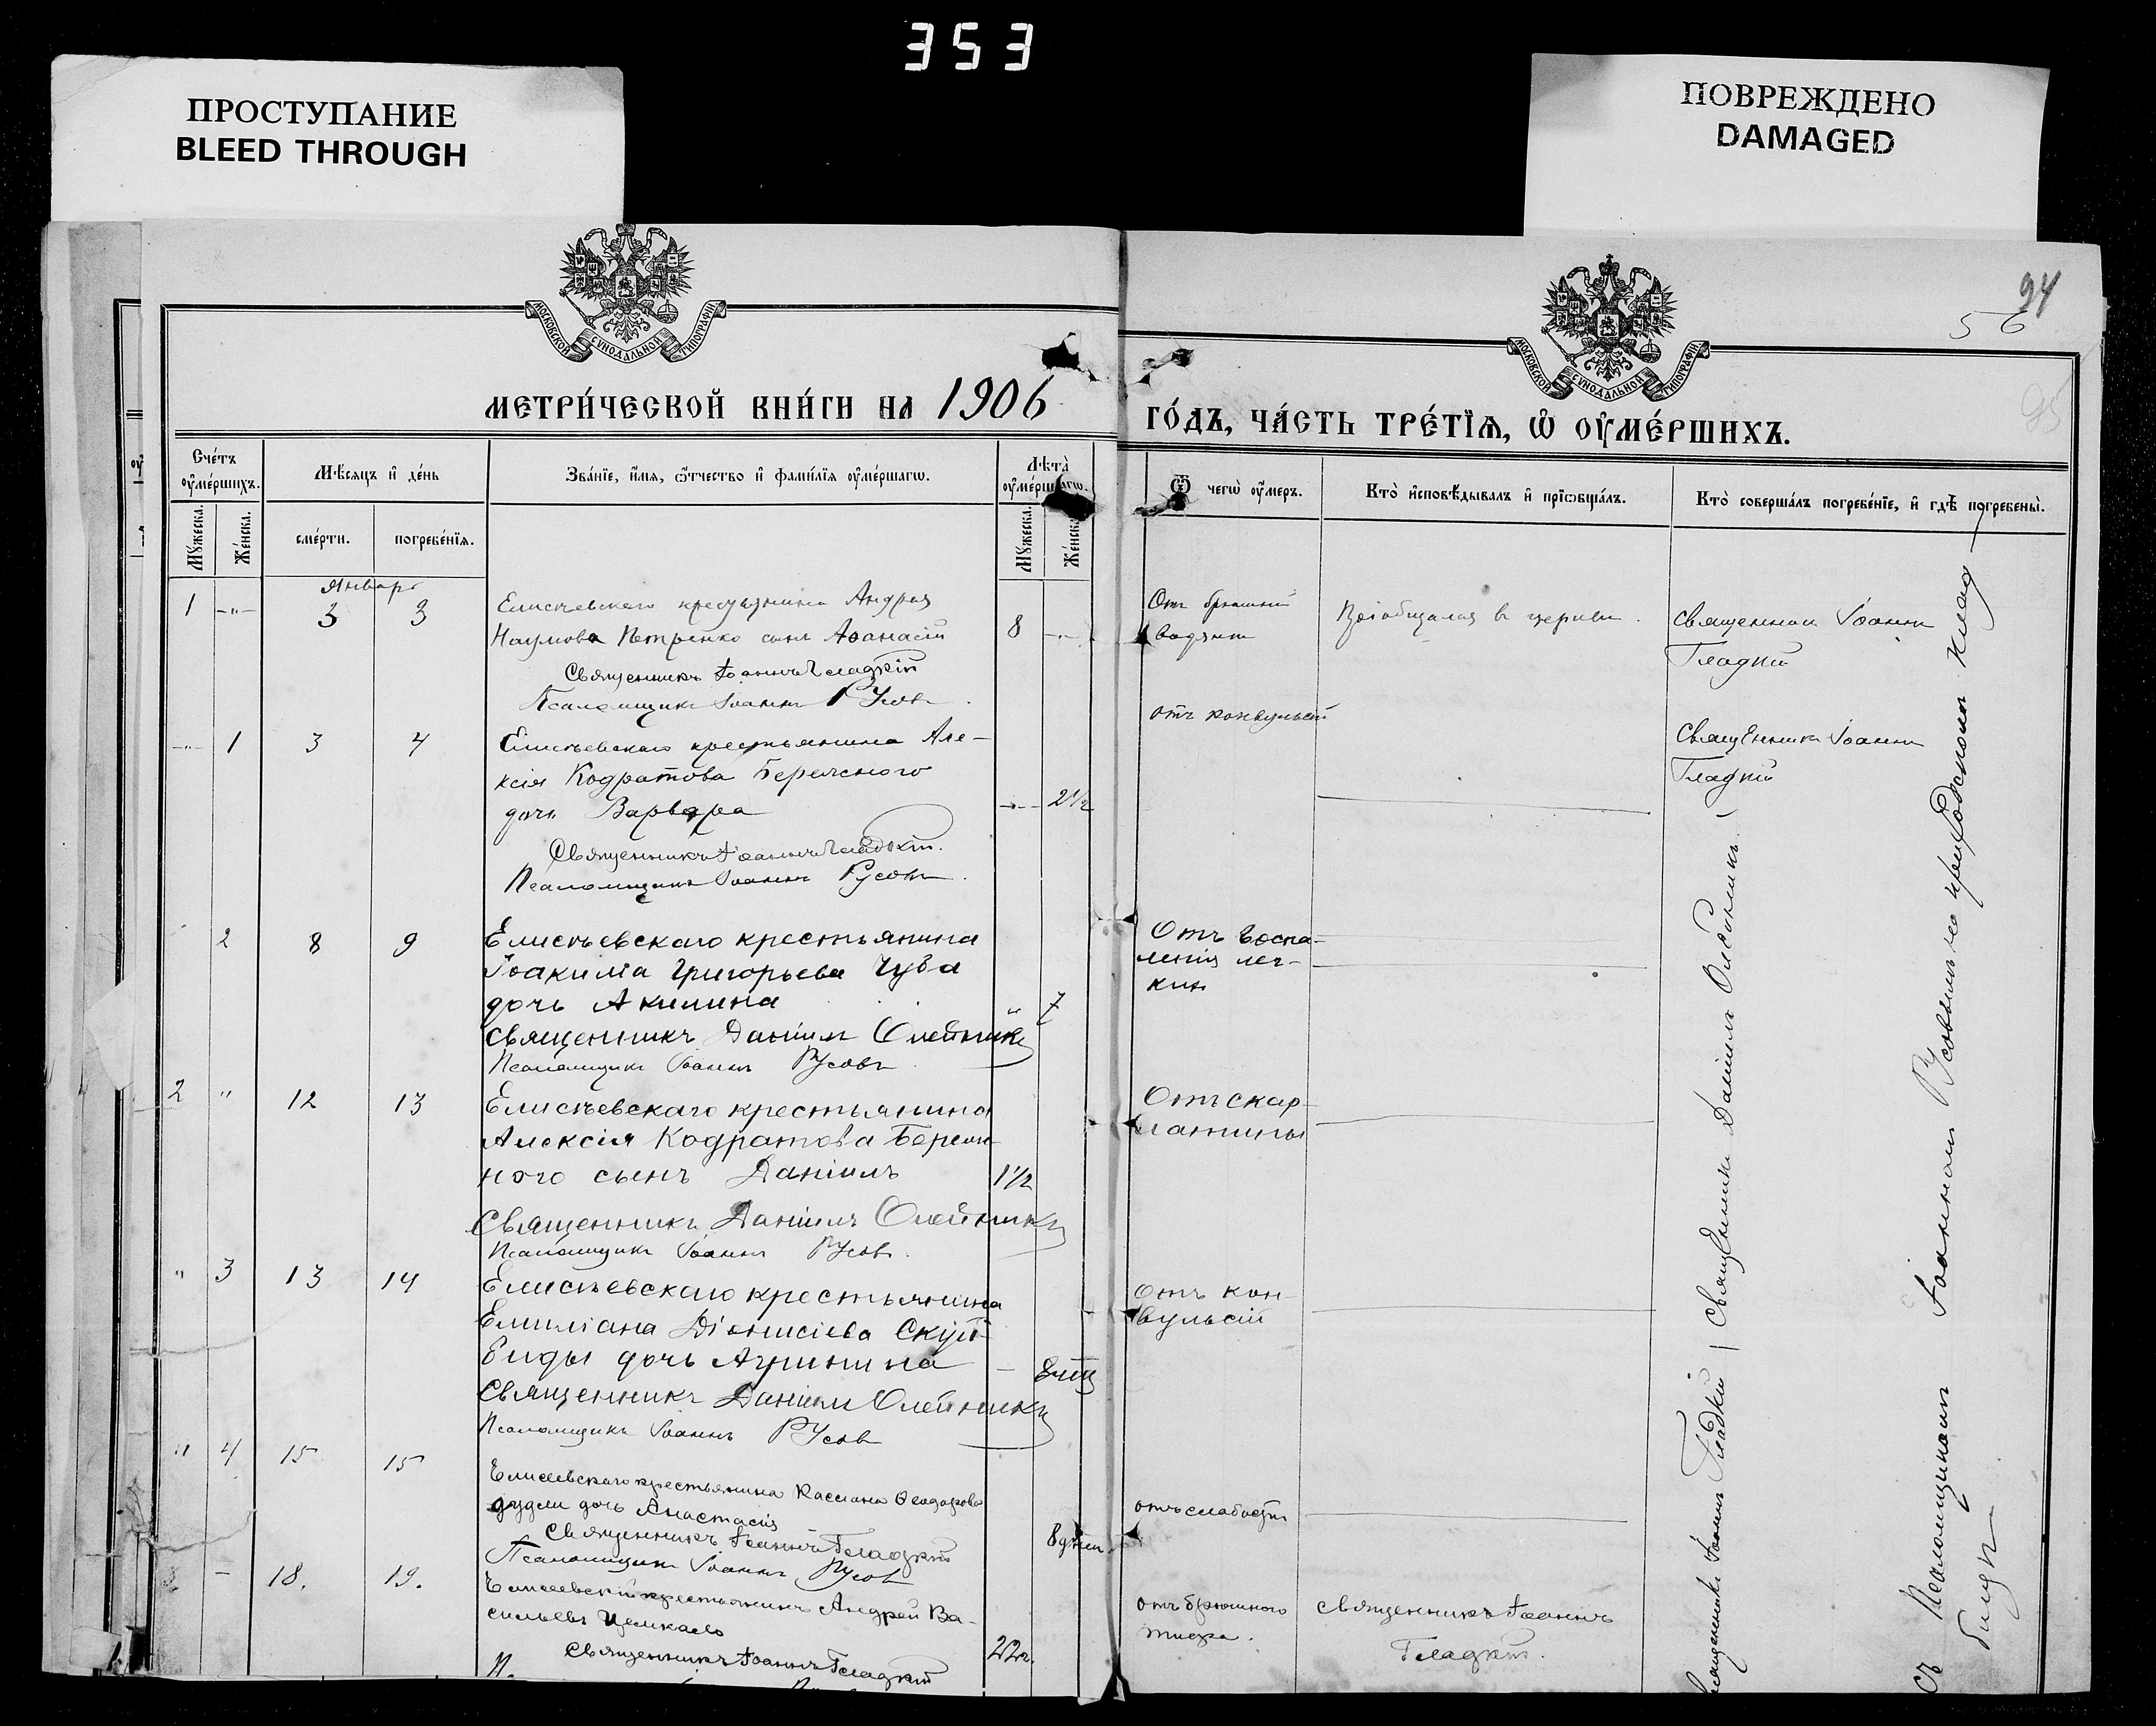 353
ПРОСТУПАНИЕ
BLEED THROUGH
ПОВРЕЖДЕНО
DAMAGED
МОСКОВСКОЙ СѴНОДАЛЬНОЙ ТИПОГРАФІИ
МОСКОВСКОЙ СѴНОДАЛЬНОЙ ТИПОГРАФІИ
94
56
95
МЕТРИ́ЧЕСКОЙ КНИ́ГИ НА 1906
ГО́ДЪ, ЧА́СТЬ ТРЕ́ТІѦ, Ѡ҆ ОУ҆МЕ́РШИХЪ.
Сче́тъ оу҆ме́ршихъ.
Мꙋ́жеска.
Же́нска.
Мѣ́сѧцъ и҆ де́нь
сме́рти.
погребе́нїѧ.
Зва́нїе, и҆́мѧ, ѻ҆́тчество и҆ фами́лїѧ оу҆ме́ршагѡ.
Лѣ́та оу҆ме́ршагѡ.
Мꙋ́жеска.
Же́нска.
Ѿ чегѡ̀ оу҆́меръ.
Кто̀ и҆сповѣ́дывалъ и҆ прїѡбща́лъ.
Кто̀ соверша́лъ погребе́нїе, и҆ гдѣ̀ погребены̀.
Январь
1 -"- 3 3
Елисѣевскаго крестьянина Андрея
Наумова Петренко сынъ Аѳанасій
8 -"-
Священникъ Іоаннъ Гладкій
Псаломщикъ Іоаннъ Русовъ
Отъ брюшной
водянки
Пріобщался въ церкви.
Священник Іоаннъ
Гладкій
-"- 1 3 4
Елисѣевскаго крестьянина Але-
ксія Кодратова Бережного
дочь Варвара
-"- 2½
Священникъ Іоаннъ Гладкій.
Псаломщикъ Іоаннъ Русовъ.
отъ конвульсій
Священникъ Іоаннъ
Гладкій
2 8 9
Елисѣевскаго крестьянина
Іоакима Григорьева Чуба
дочь Акилина
" 7
Священникъ Даніилъ Олейникъ
Псаломщикъ Іоаннъ Русовъ
Отъ воспа-
ленія лег-
ких
2 " 12 13
Елисѣевскаго крестьянина
Алексія Кодратова Береж-
ного сынъ Даніилъ
1½
Священникъ Даніилъ Олейникъ
Псаломщикъ Іоаннъ Русовъ.
Отъ скар-
латины
" 3 13 14
Елисѣевскаго крестьянина
Емиліана Діонисіева Скуй-
биды дочь Агрипина
Священникъ Даніилъ Олейникъ
Псаломщикъ Іоаннъ Русов
отъ кон-
вульсій
" 4 15 15
Елисеевскаго крестьянина Кассіана Ѳеодорова
дочь Анастасія
8 дней
Священникъ Іоаннъ Гладкій
Псаломщикъ Іоаннъ Русов
отъ слабости
3 - 18. 19.
Елисеевскій крестьянинъ Андрей Ва-
сильевъ
22 г.
Священникъ Іоаннъ Гладкій
отъ брюшного
тифа.
Священникъ Іоаннъ
Гладкій.
Священникъ Іоаннъ Гладкій / Священникъ Даніилъ Олейникъ /
съ Псаломщикомъ Іоанномъ Русовымъ на приходскомъ клад-
бищѣ